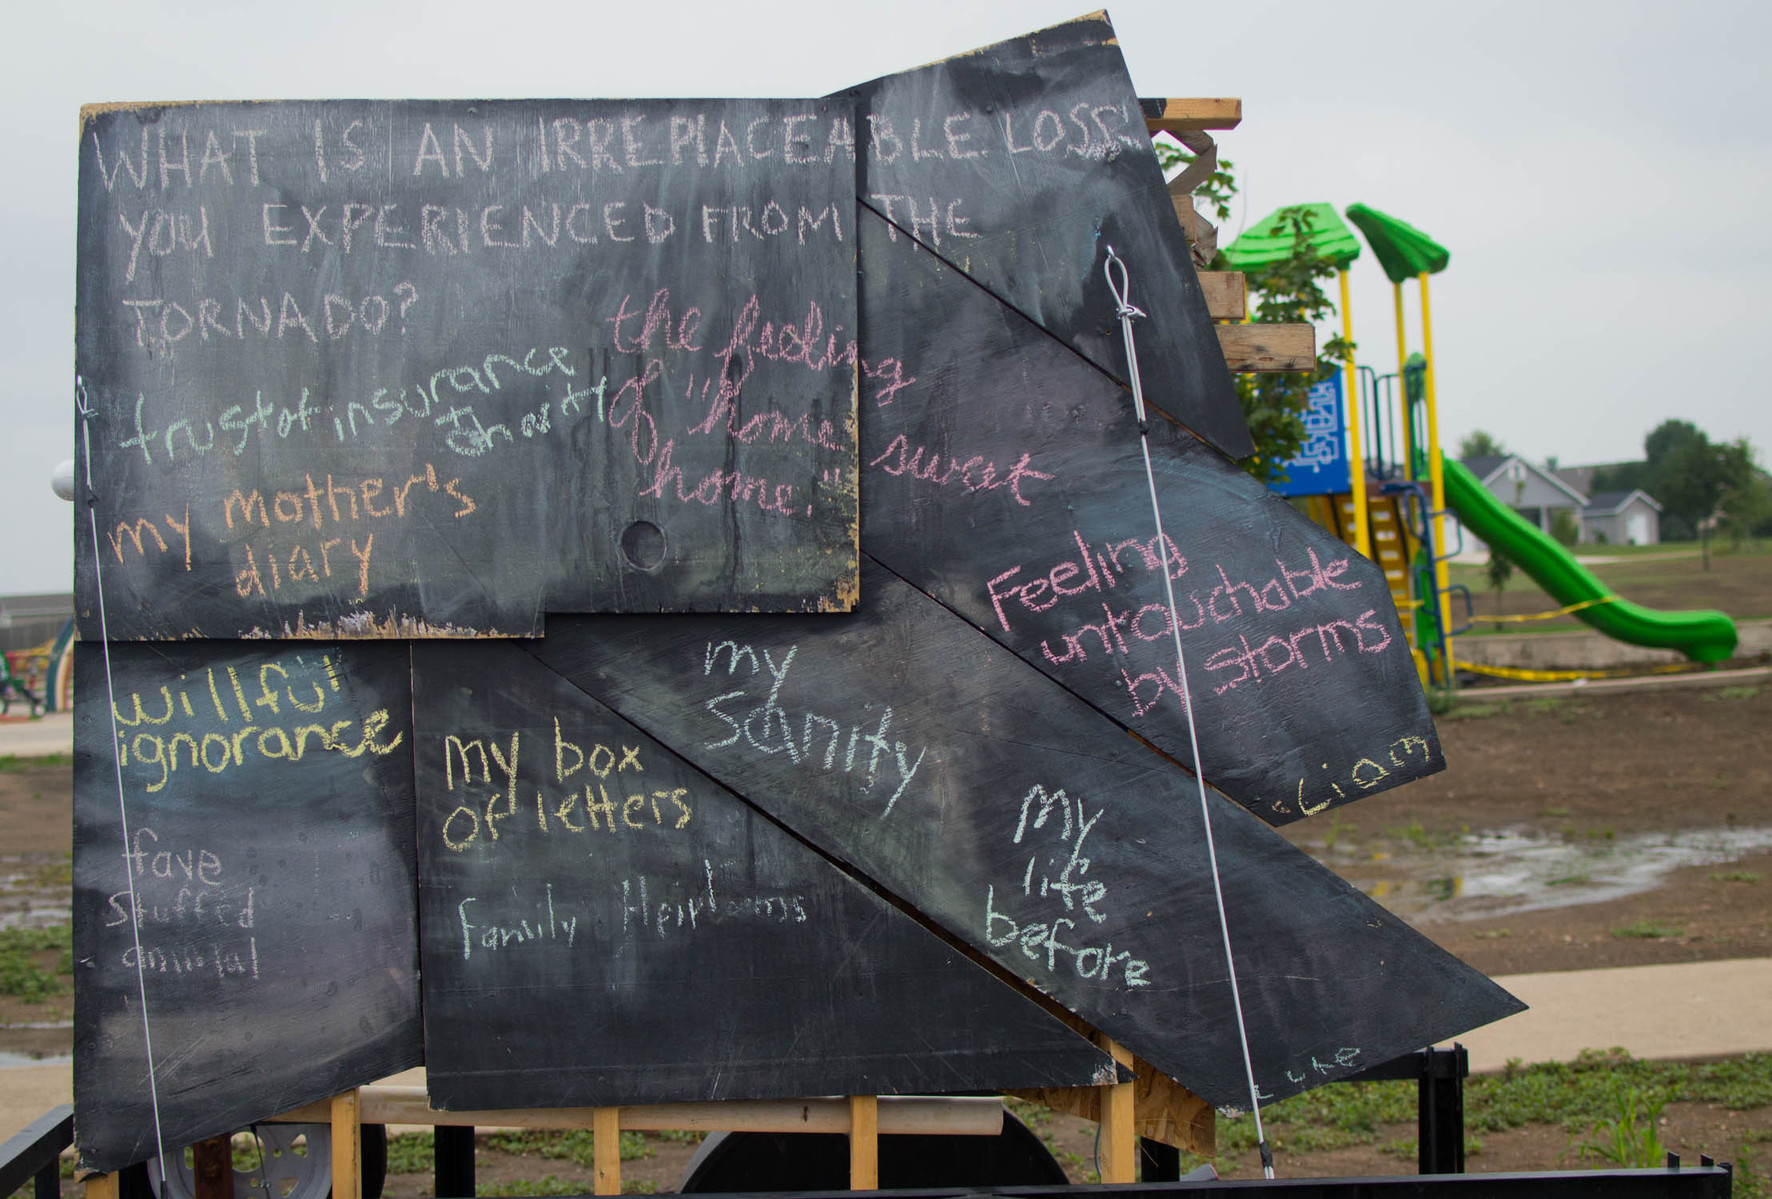 WHAT IS AN IRREPLACEABLE LOSS
YOU EXPERIENCED FROM THE
TORNADO?
trust of insurance
charity
the feeling
of "home
sweet
home."
my mother's
diary
Feeling
untouchable
by storms
Liam
willful
ignorance
my
Sanity
my box
of letters
my
life
before
fave
stuffed
animal
Family Heirlooms
Luke